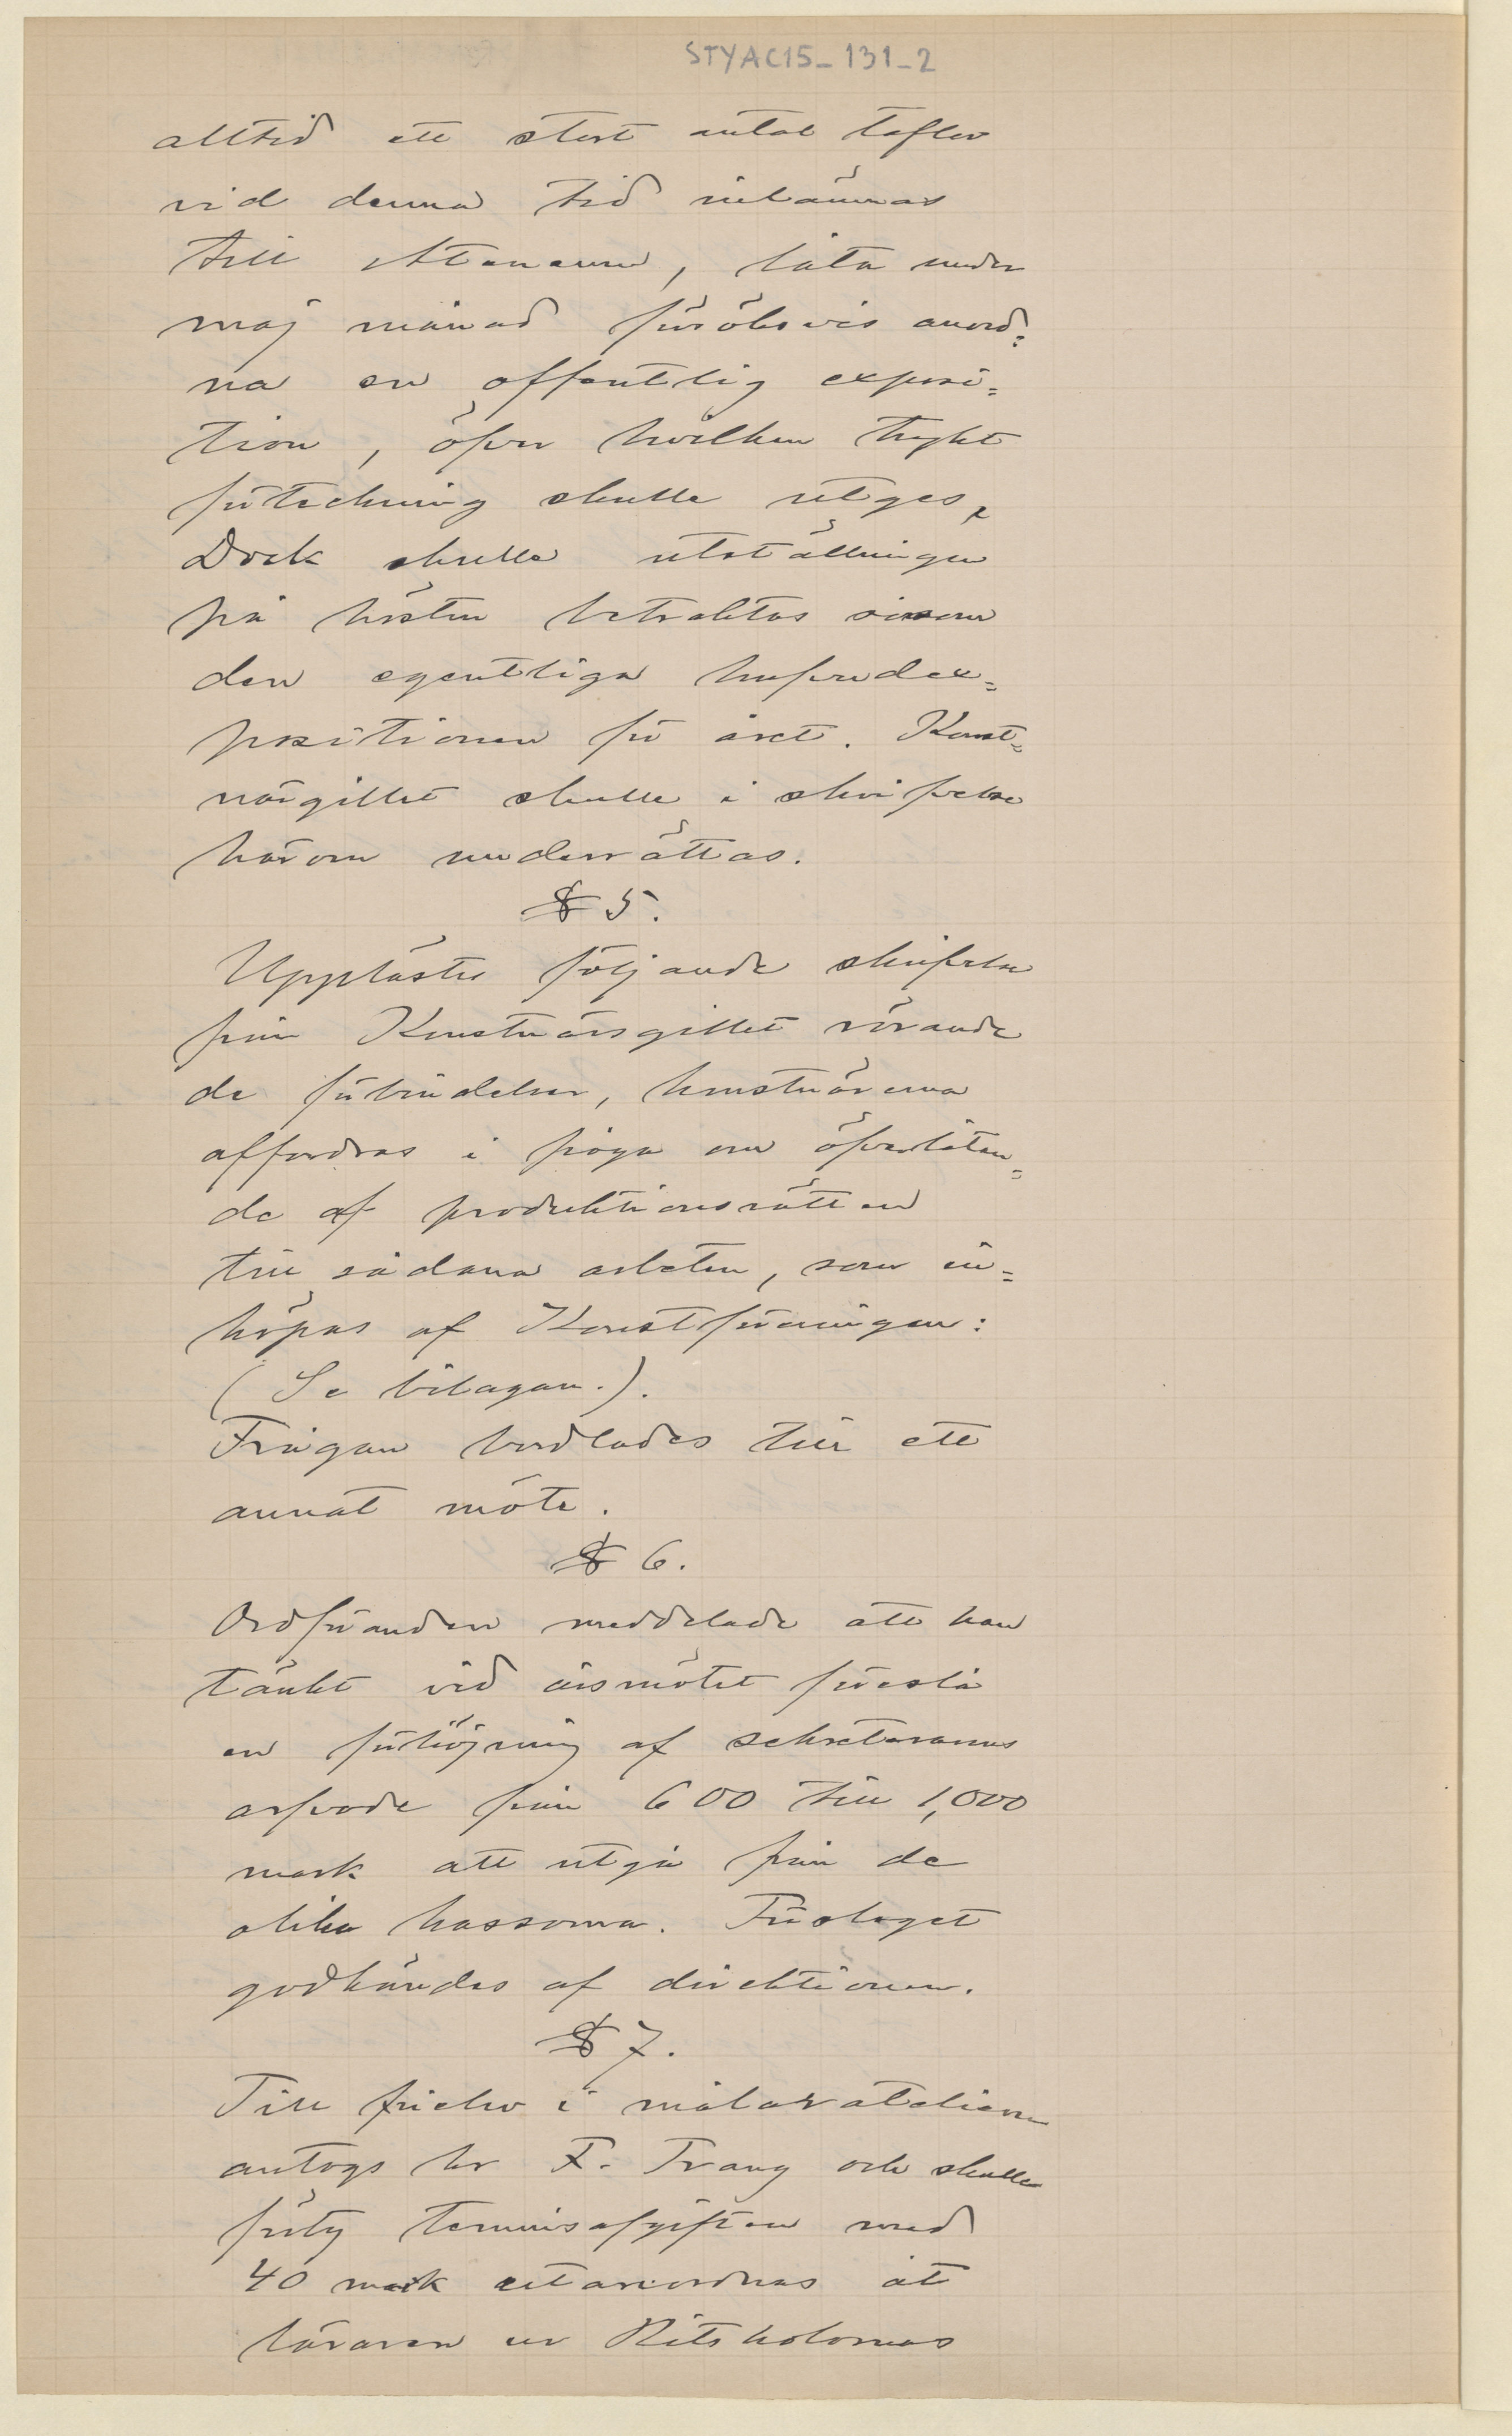 STYAC15_131_2
alltid ett stort antal taflor
vid denna tid inlämnas
till Ateneum, låta under
maj månad försöksvis anord=
na en offentlig exposi=
tion, öfver hvilken tryckt
förteckning skulle utges.
Dock skulle utställningen
på hösten betraktas såsom
den egentliga hufvudex=
positionen för året. Konst=
närgillet skulle i skrifvelse
härom underrättas.
§ 5.
Upplästes följande skrifvelse
från Konstnärsgillet rörande
de förbindelser, konstnärerna
affordras i fråga om öfverlåtan=
de af produktionsrätten
till sådana arbeten, som in=
köpas af Konstföreningen:
(Se bilagan.).
Frågan bordlades till ett
annat möte.
§ 6.
Ordföranden meddelade att han
tänkt vid årsmötet föreslå
en förhöjning af sekreterarens
arfvode från 600 till 1,000
mark att utgå från de
olika kassorna. Förslaget
godkändes af direktionen.
§ 7.
Till frielev i målareatelieren
antogs hr F. Trang och skulle
förty terminsafgiften med
40 mark utanordnas åt
läraren ur Ritskolornas